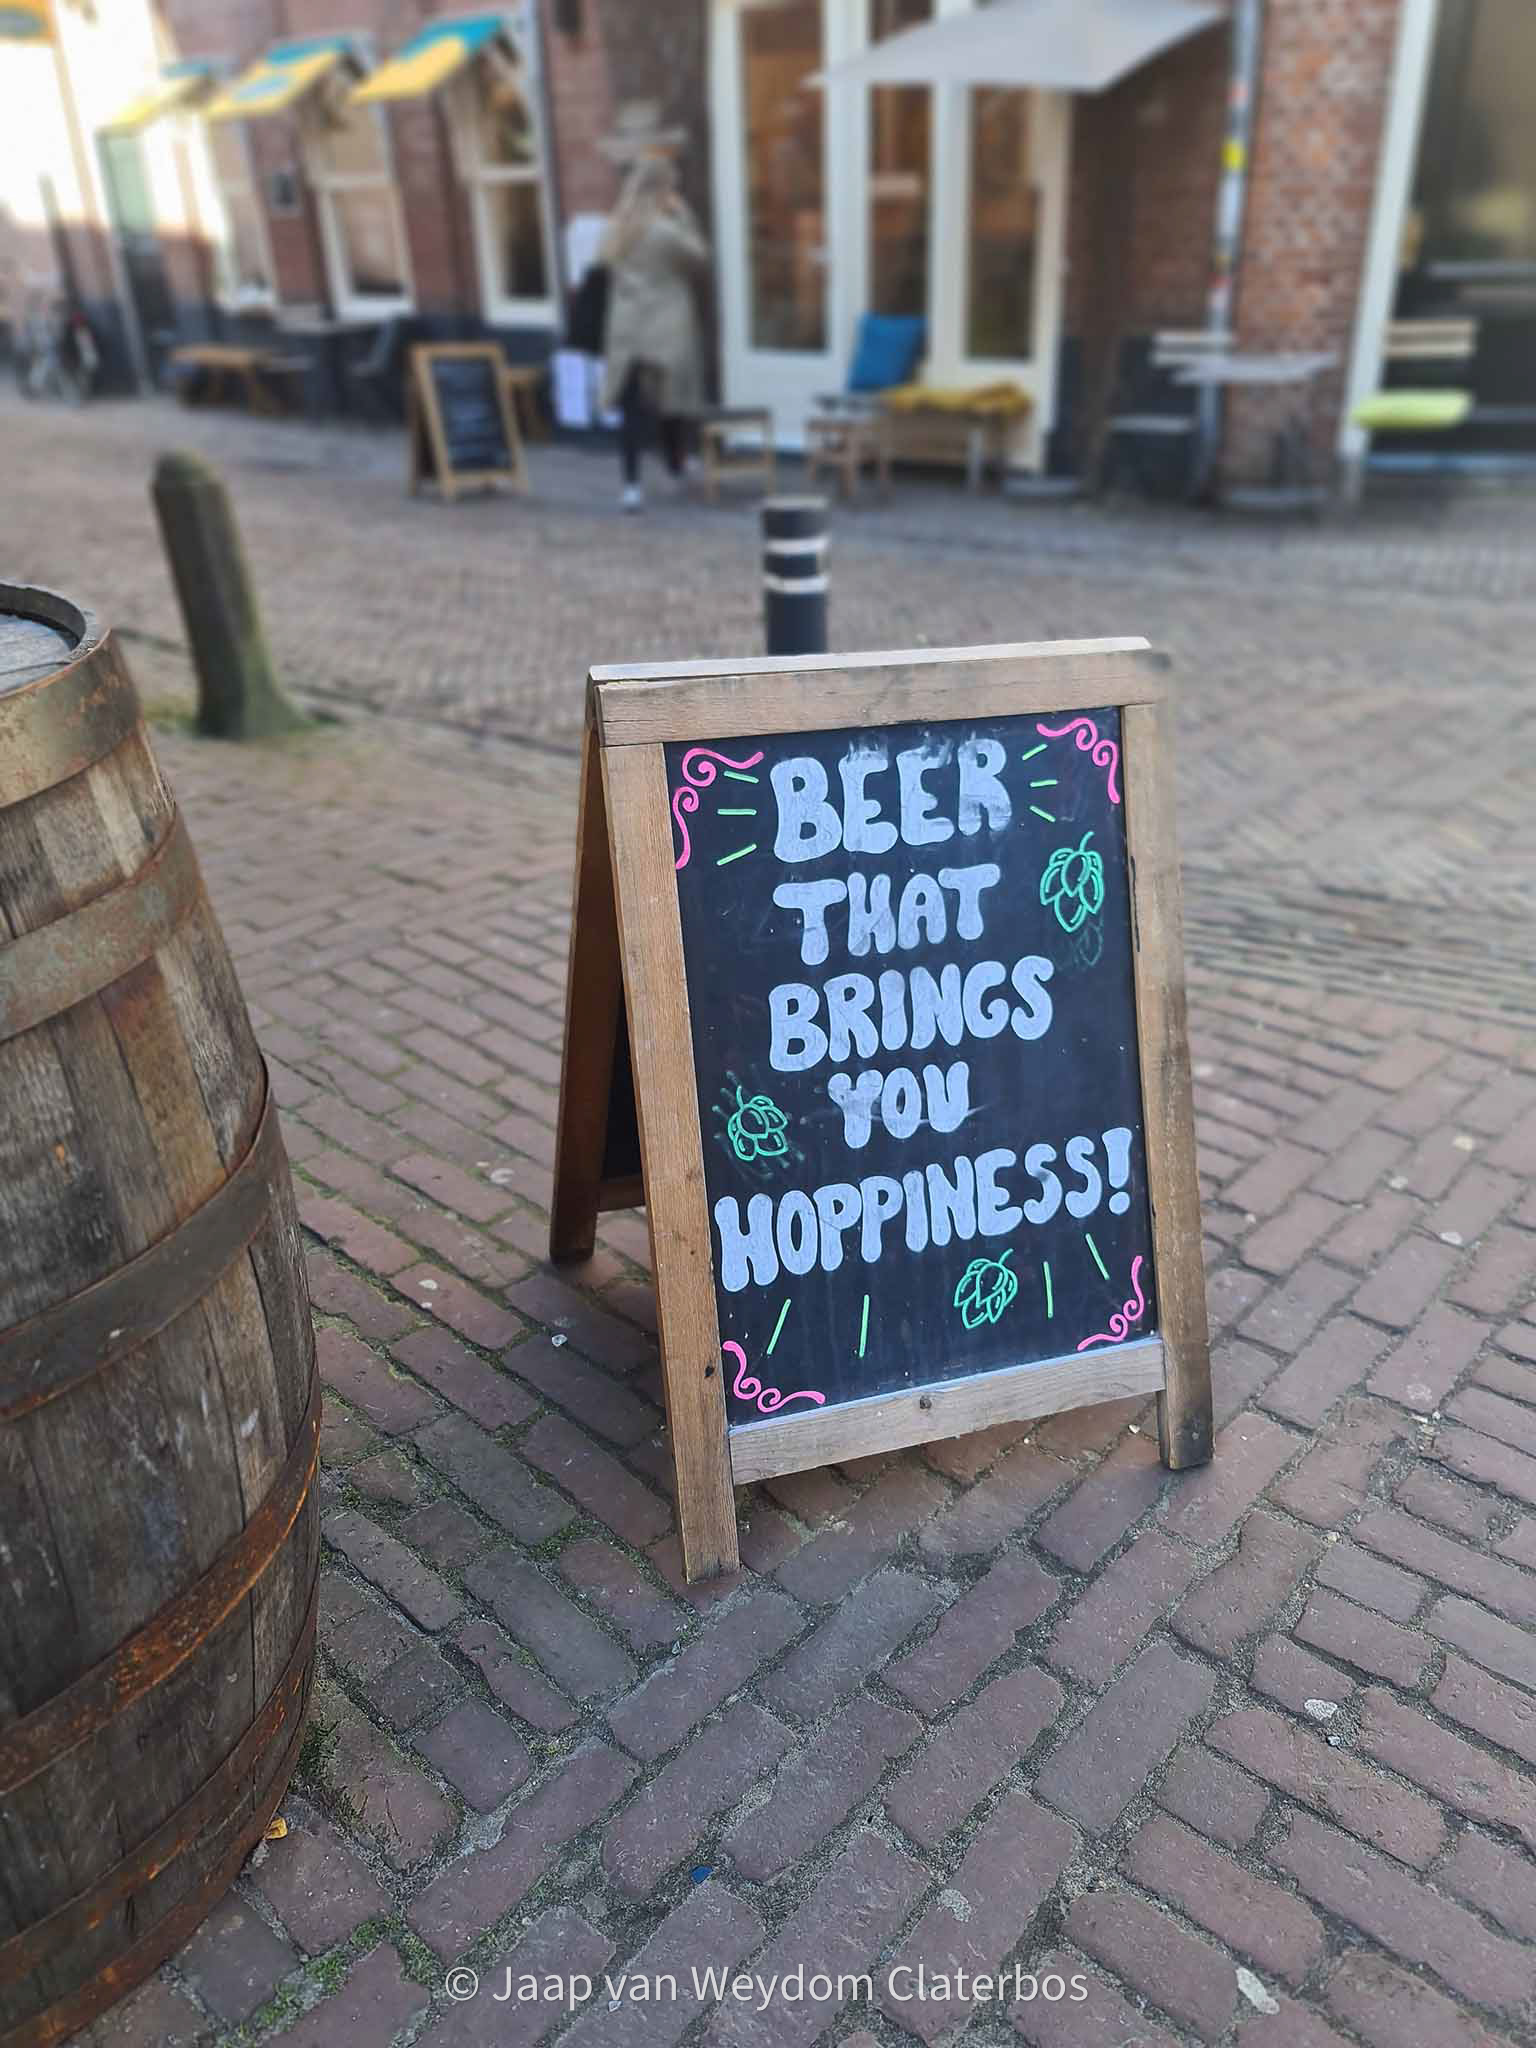 BEER
THAT
BRINGS
YOU
HOPPINESS!
© Jaap van Weydom Claterbos